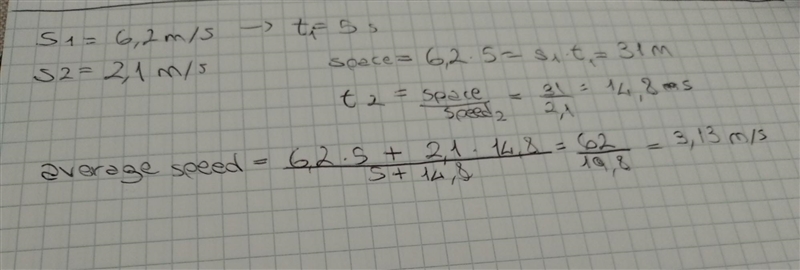 S1 = 6,2 m/s → t₁ = 5 s
S2 = 2,1 m/s
space = 6,2 · 5 = s₁ · t₁ = 31 m
t2 = space/speed₂ = 31/2,1 = 14,8 s
average speed = (6,2 · 5 + 2,1 · 14,8)/(5 + 14,8) = 62/19,8 = 3,13 m/s